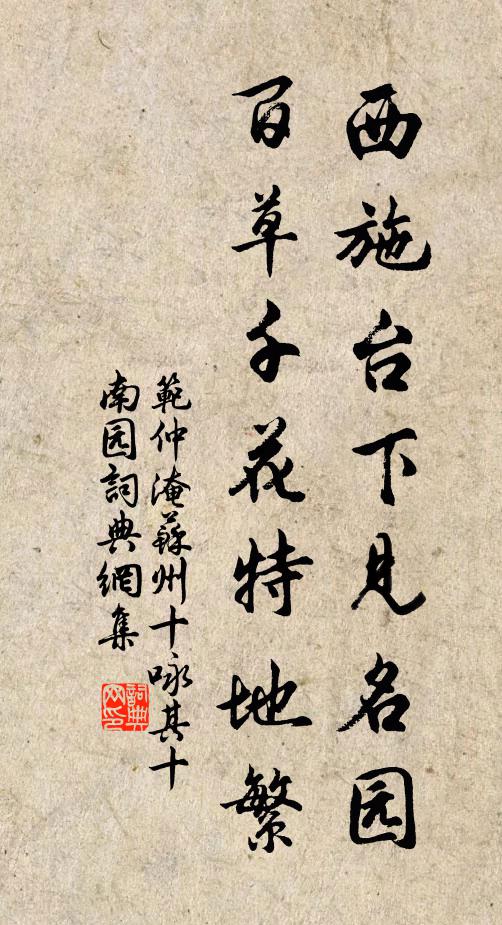 西施台下见名园
百草千花特地繁
範仲淹蘇州十咏其十
南园詞典網集
詞典网印